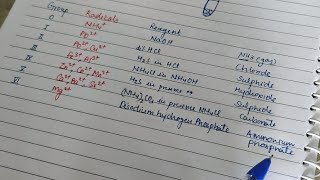 Group Radicals Reagent
0 NH4+ NaOH NH3 (gas)
I Pb2+ dil HCl Chloride
II Pb2+ Cu2+ H2S in HCl Sulphide
III Fe3+ Al3+ NH4Cl in NH4OH Hydroxide
H2S in presence Sulphide
V Ca2+ Ba2+ Sr2+ (NH4)2CO3 in presence NH4Cl Carbonate
VI Mg2+ Disodium hydrogen Phosphate Ammonium
phosphate